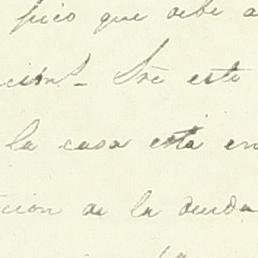 pico que debe a
ción. Sre este
la casa está en
ción de la deuda